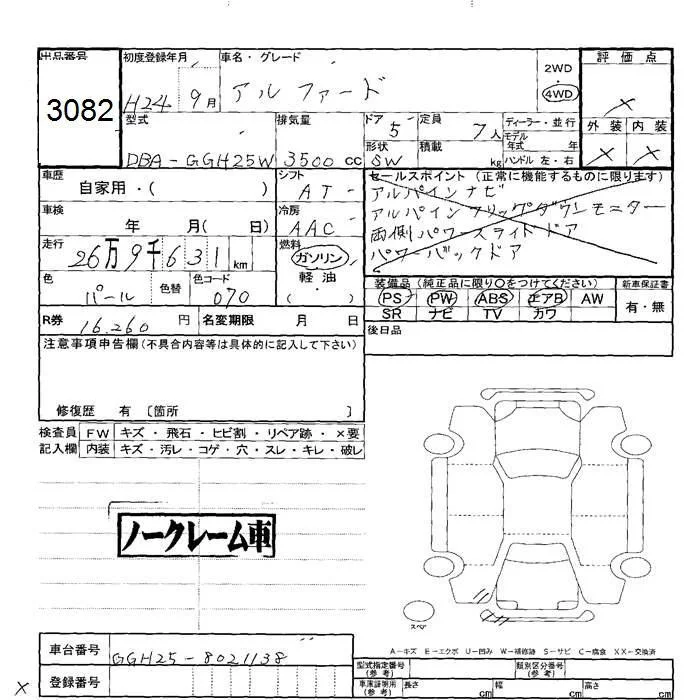 出品番号
3082
初度登録年月
H24 9月
車名・グレード
アルファード
2WD
4WD
評価点
×
外装 内装
× ×
型式
DBA-GGH25W
排気量
3500cc
ドア
5
形状
SW
定員
7人
積載
kg
ディーラー・並行
モデル
年式 年
ハンドル 左・右
車歴
自家用・( )
シフト
AT-
車検
年 月( 日)
冷房
AAC
走行
26万9千631km
燃料
ガソリン
軽油
( )
色
パール
色替
色コード
070
セールスポイント (正常に機能するものに限ります)
アルパインナビ
アルパインフリップダウンモニター
両側パワースライドドア
パワーバックドア
装備品(純正品に限り○をつけてください)
PS PW ABS エアB AW
SR ナビ TV カワ
新車保証書
有・無
R券
16.260円
名変期限 月 日
後日品
注意事項申告欄(不具合内容等は具体的に記入して下さい)
修復歴 有 〔箇所 〕
検査員
記入欄
FW キズ・飛石・ヒビ割・リペア跡・×要
内装 キズ・汚レ・コゲ・穴・スレ・キレ・破レ
ノークレーム車
スペア
A-キズ E-エクボ U-凹み W-補修跡 S-サビ C-腐食 XX-交換済
車台番号
GGH25-8021138
登録番号
×
型式指定番号
(参考)
類別区分番号
(参考)
車庫証明用
(参考)
長さ cm
幅 cm
高さ cm